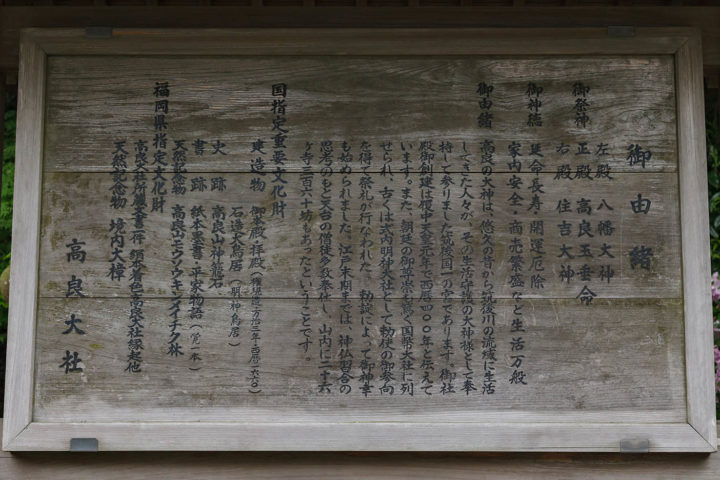 御由緒
御祭神
左殿 八幡大神
正殿 高良玉垂命
右殿 住吉大神
御神徳
延命長寿・開運厄除
家内安全・商売繁盛など生活万般
御由緒
高良の大神は、悠久の昔から筑後川の流域に生活
してきた人々が、その生活守護の大神様として奉
持して参りました筑後国一の宮であります。御社
殿御創建は履中天皇元年で西暦四〇〇年と伝えて
います。また、朝廷の御尊崇も篤く国幣大社に列
せられ、古くは式内明神大社として勅使の御参向
を得て祭礼が行なわれた。勅裁によって御神幸
も始められました。江戸末期までは、神仏習合の
思考のもと天台の僧徒多数奉仕し、山内に二十六
ヶ寺三百六十坊もあったということです。
国指定重要文化財
建造物 御本殿・拝殿(権現造・万治三年・西暦一六六〇)
石造大鳥居(明神鳥居)
史跡 高良山神籠石
書跡 紙本墨書・平家物語(覚一本)
天然記念物 高良山モウソウキンメイチク林
福岡県指定文化財
高良大社所蔵文書一括 絹本着色高良大社縁起他
天然記念物 境内大樟
高良大社